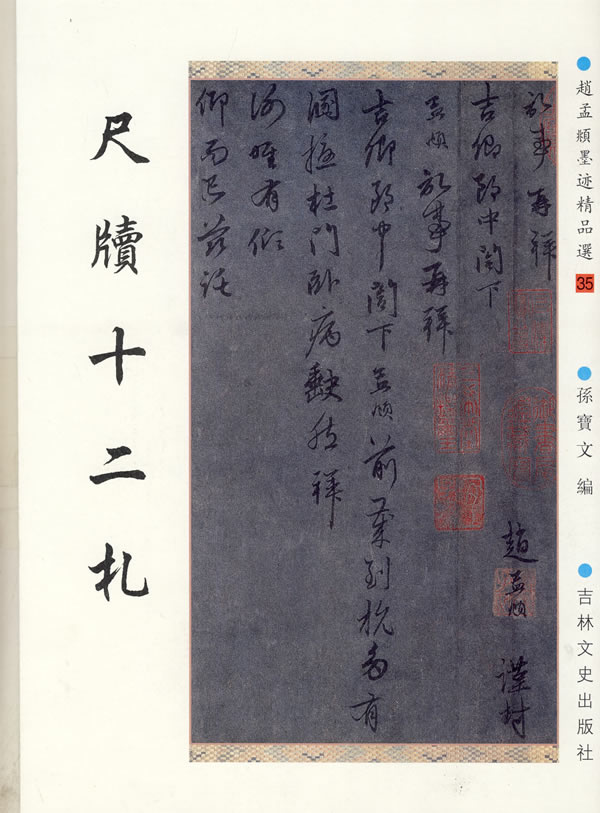 趙孟頫墨迹精品選 35
孫寶文 編
吉林文史出版社
尺牘十二札
記事再拜
吉卿郎中閤下
趙孟頫謹封
孟頫記事再拜
吉卿郎中閤下孟頫前到杭多有
溷撓杜門臥病闕然拜
謝唯有傾
仰而已茲託